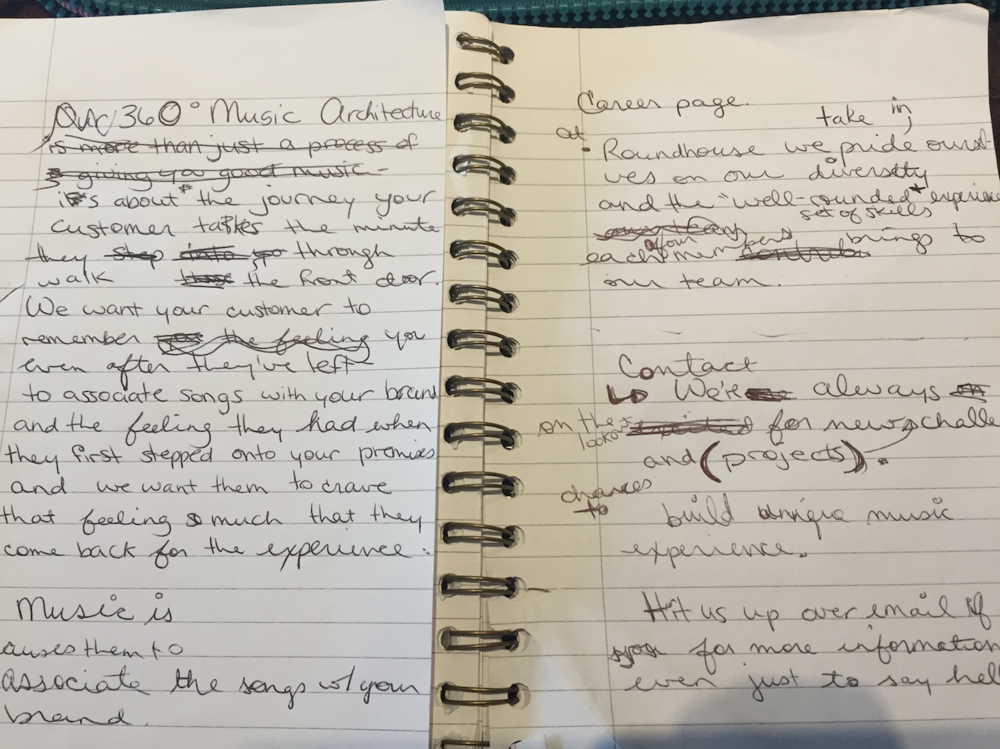 Our 360° Music Architecture
is more than just a process of
giving you good music -
it's about the journey your
customer takes the minute
they step into go through
walk the front door.
We want your customer to
remember the feeling you
even after they've left
to associate songs with your brand
and the feeling they had when
they first stepped onto your premises
and we want them to crave
that feeling so much that they
come back for the experience.
Music is
auses them to
associate the songs w/ your
brand.
Career page.
take in
at
Roundhouse we pride oursel-
ves on our diversity
and the "well-rounded" experience
set of skills
each of our members brings to
our team.
Contact
↳ We're always
on the
look for new challe
and (projects).
chances
to build unique music
experience.
Hit us up over email if
you for more information
even just to say hell